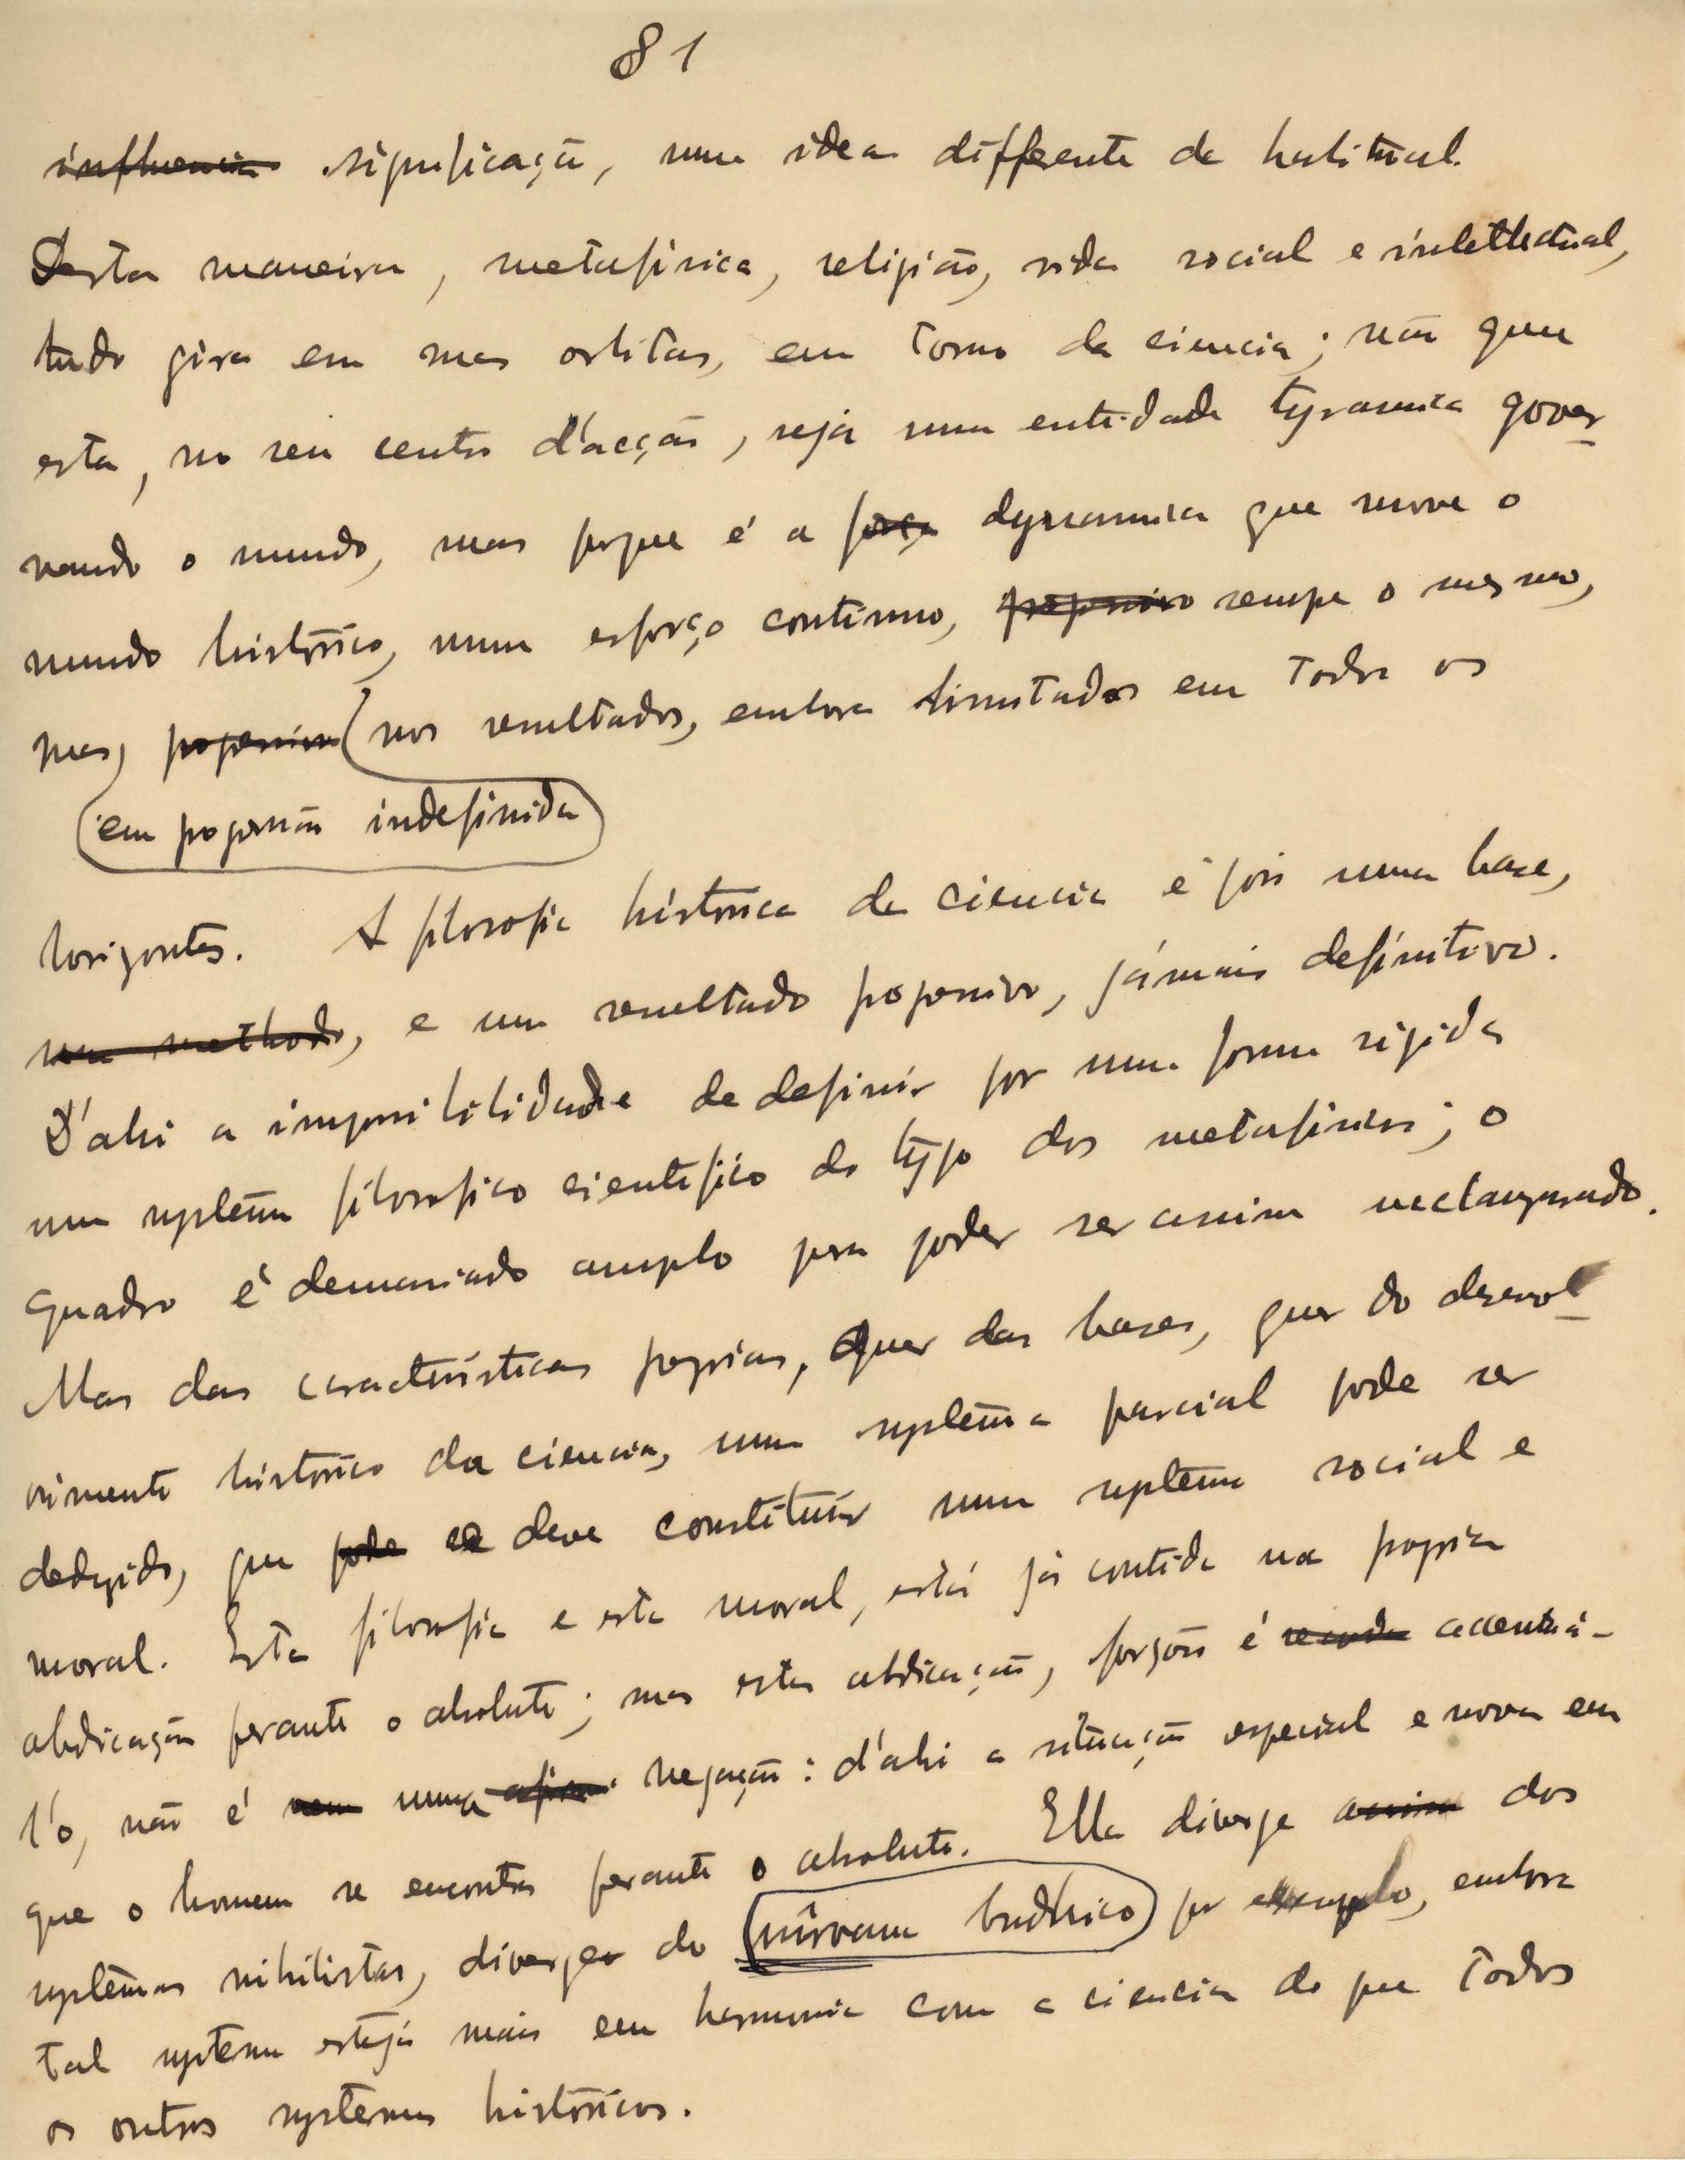 81
influencia significação, uma idea differente da habitual.
Desta maneira, metafisica, religião, vida social e intellectual,
tudo gira em suas orbitas, em torno da ciencia; não que
esta, no seu centro d'acção, seja uma entidade tyrannica gover-
nando o mundo, mas porque é a força dynamica que move o
mundo histórico, num esforço continuo, progressivo sempre o mesmo,
mas, progressivo nos resultados, embora limitados em todos os
em progressão indefinida
horizontes. A filosofia histórica da ciencia é pois uma base,
um methodo, e um resultado progressivo, jámais definitivo.
D'ahi a impossibilidade de definir por uma forma rigida
um systema filosofico cientifico do typo dos metafisicos; o
quadro é demasiado amplo para poder ser assim
Mas das caracteristicas proprias, quer das bases, quer do desenvol-
vimento histórico da ciencia, um systema parcial pode ser
deduzido, que pode e deve constituir um systema social e
moral. Esta filosofia e esta moral, está já contida na propria
abdicação perante o absoluto; mas esta abdicação, forçoso é accentuá-
l'o, não é nem uma negação: d'ahi a situação especial e nova em
que o homem se encontra perante o absoluto. Ella diverge assim dos
systemas nihilistas, diverge do nirvana budhico por exemplo, embora
tal systema esteja mais em harmonia com a ciencia do que todos
os outros systemas históricos.